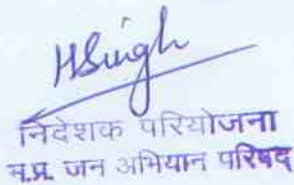 HSingh
निदेशक परियोजना
म.प्र. जन अभियान परिषद्